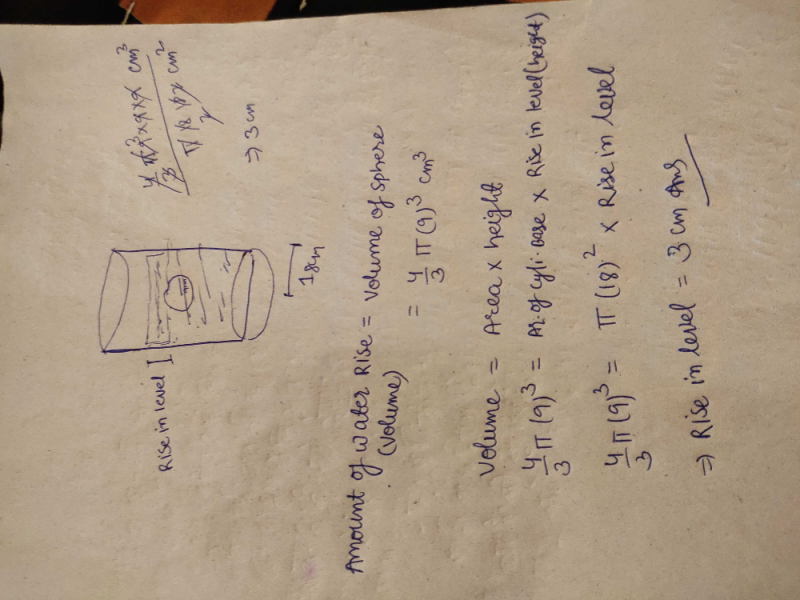 Rise in level
18cm
4/3 π × 9 × 9 × 9 cm³ / π × 18 × 18 cm²
⇒ 3 cm
Amount of water Rise = Volume of sphere
(Volume)
= 4/3 π (9)³ cm³
Volume = Area × height
4/3 π (9)³ = Ar. of cyli. base × Rise in level (height)
4/3 π (9)³ = π (18)² × Rise in level
⇒ Rise in level = 3 cm Ans